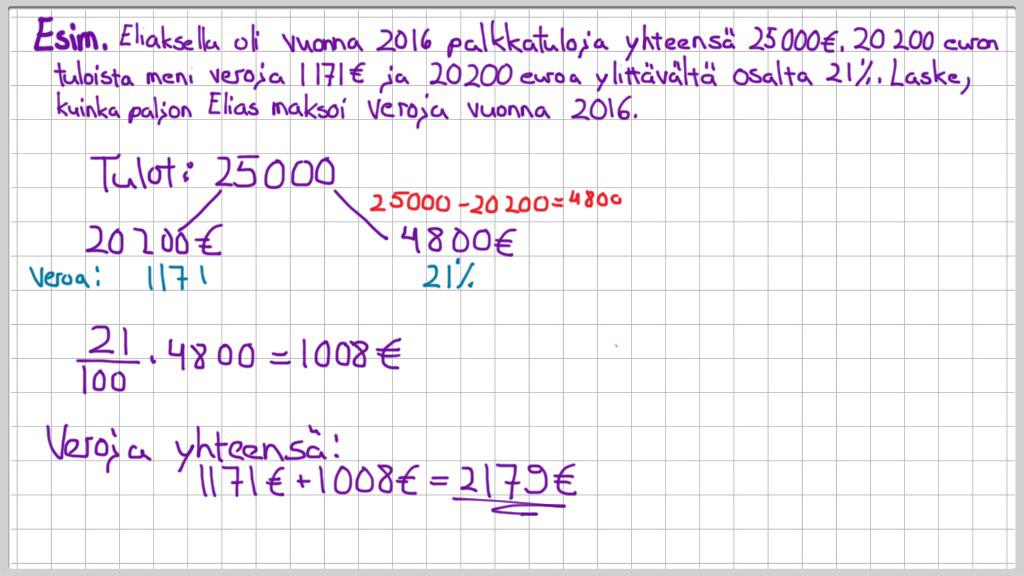 Esim. Eliaksella oli vuonna 2016 palkkatuloja yhteensä 25000€. 20 200 euron
tuloista meni veroja 1171€ ja 20200 euroa ylittävältä osalta 21%. Laske,
kuinka paljon Elias maksoi veroja vuonna 2016.
Tulot: 25000
25000 - 20 200 = 4800
20 200€ 4800€
Veroa: 1171 21%
21/100 · 4800 = 1008€
Veroja yhteensä:
1171€ + 1008€ = 2179€